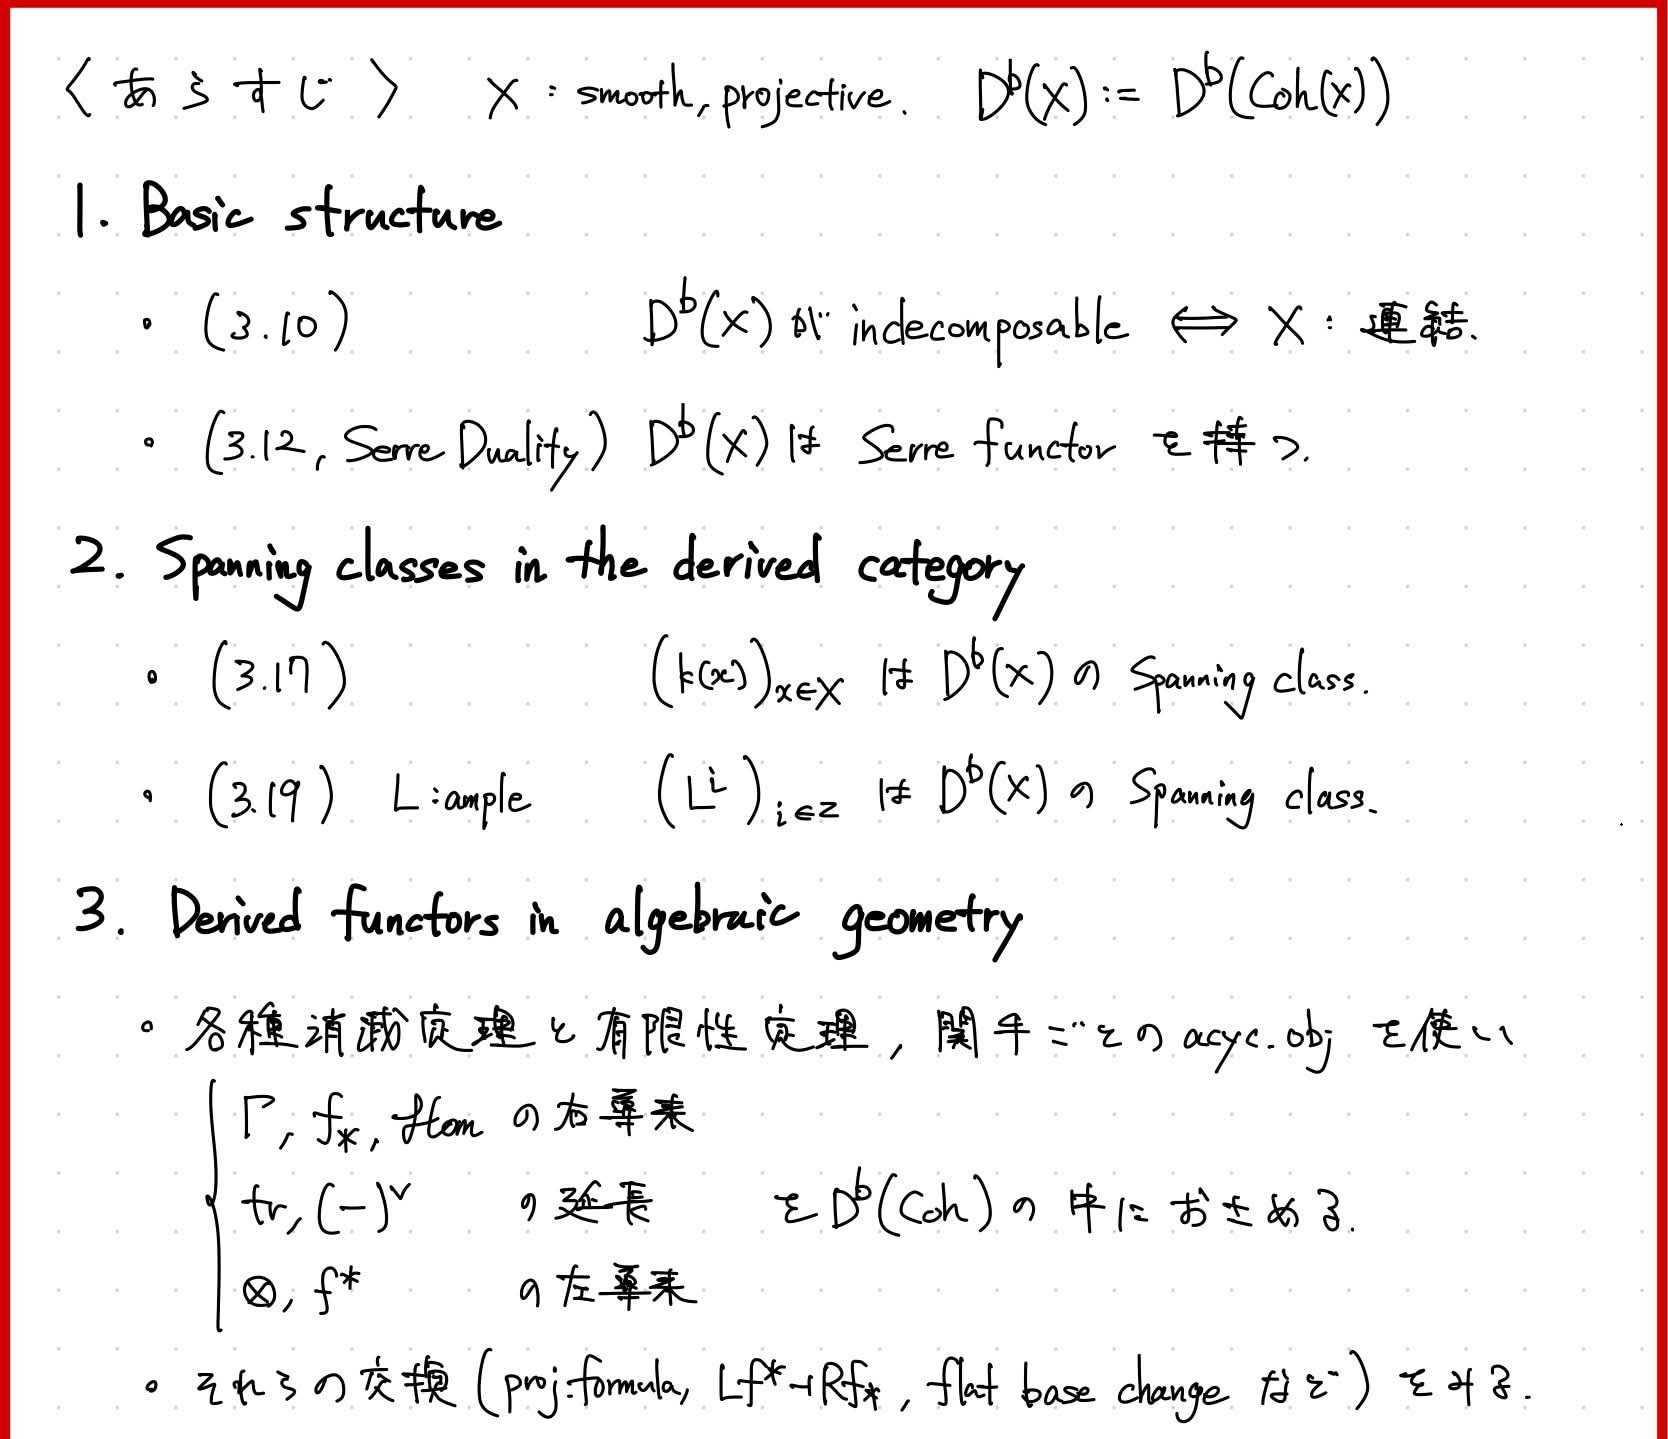 〈あらすじ〉 X : smooth, projective. D^b(X) := D^b(Coh(X))
1. Basic structure
• (3.10) D^b(X) が indecomposable ⟺ X : 連結.
• (3.12, Serre Duality) D^b(X) は Serre functor を持つ.
2. Spanning classes in the derived category
• (3.17) (k(x))_{x∈X} は D^b(X) の Spanning class.
• (3.19) L : ample (L^i)_{i∈Z} は D^b(X) の Spanning class.
3. Derived functors in algebraic geometry
• 各種消滅定理と有限性定理, 関手ごとの acyc. obj を使い
Γ, f_*, Hom の右導来
tr, (−)^∨ の延長 を D^b(Coh) の中におさめる.
⊗, f^* の左導来
• それらの交換 (proj. formula, Lf^* ⊣ Rf_*, flat base change など) をみる.